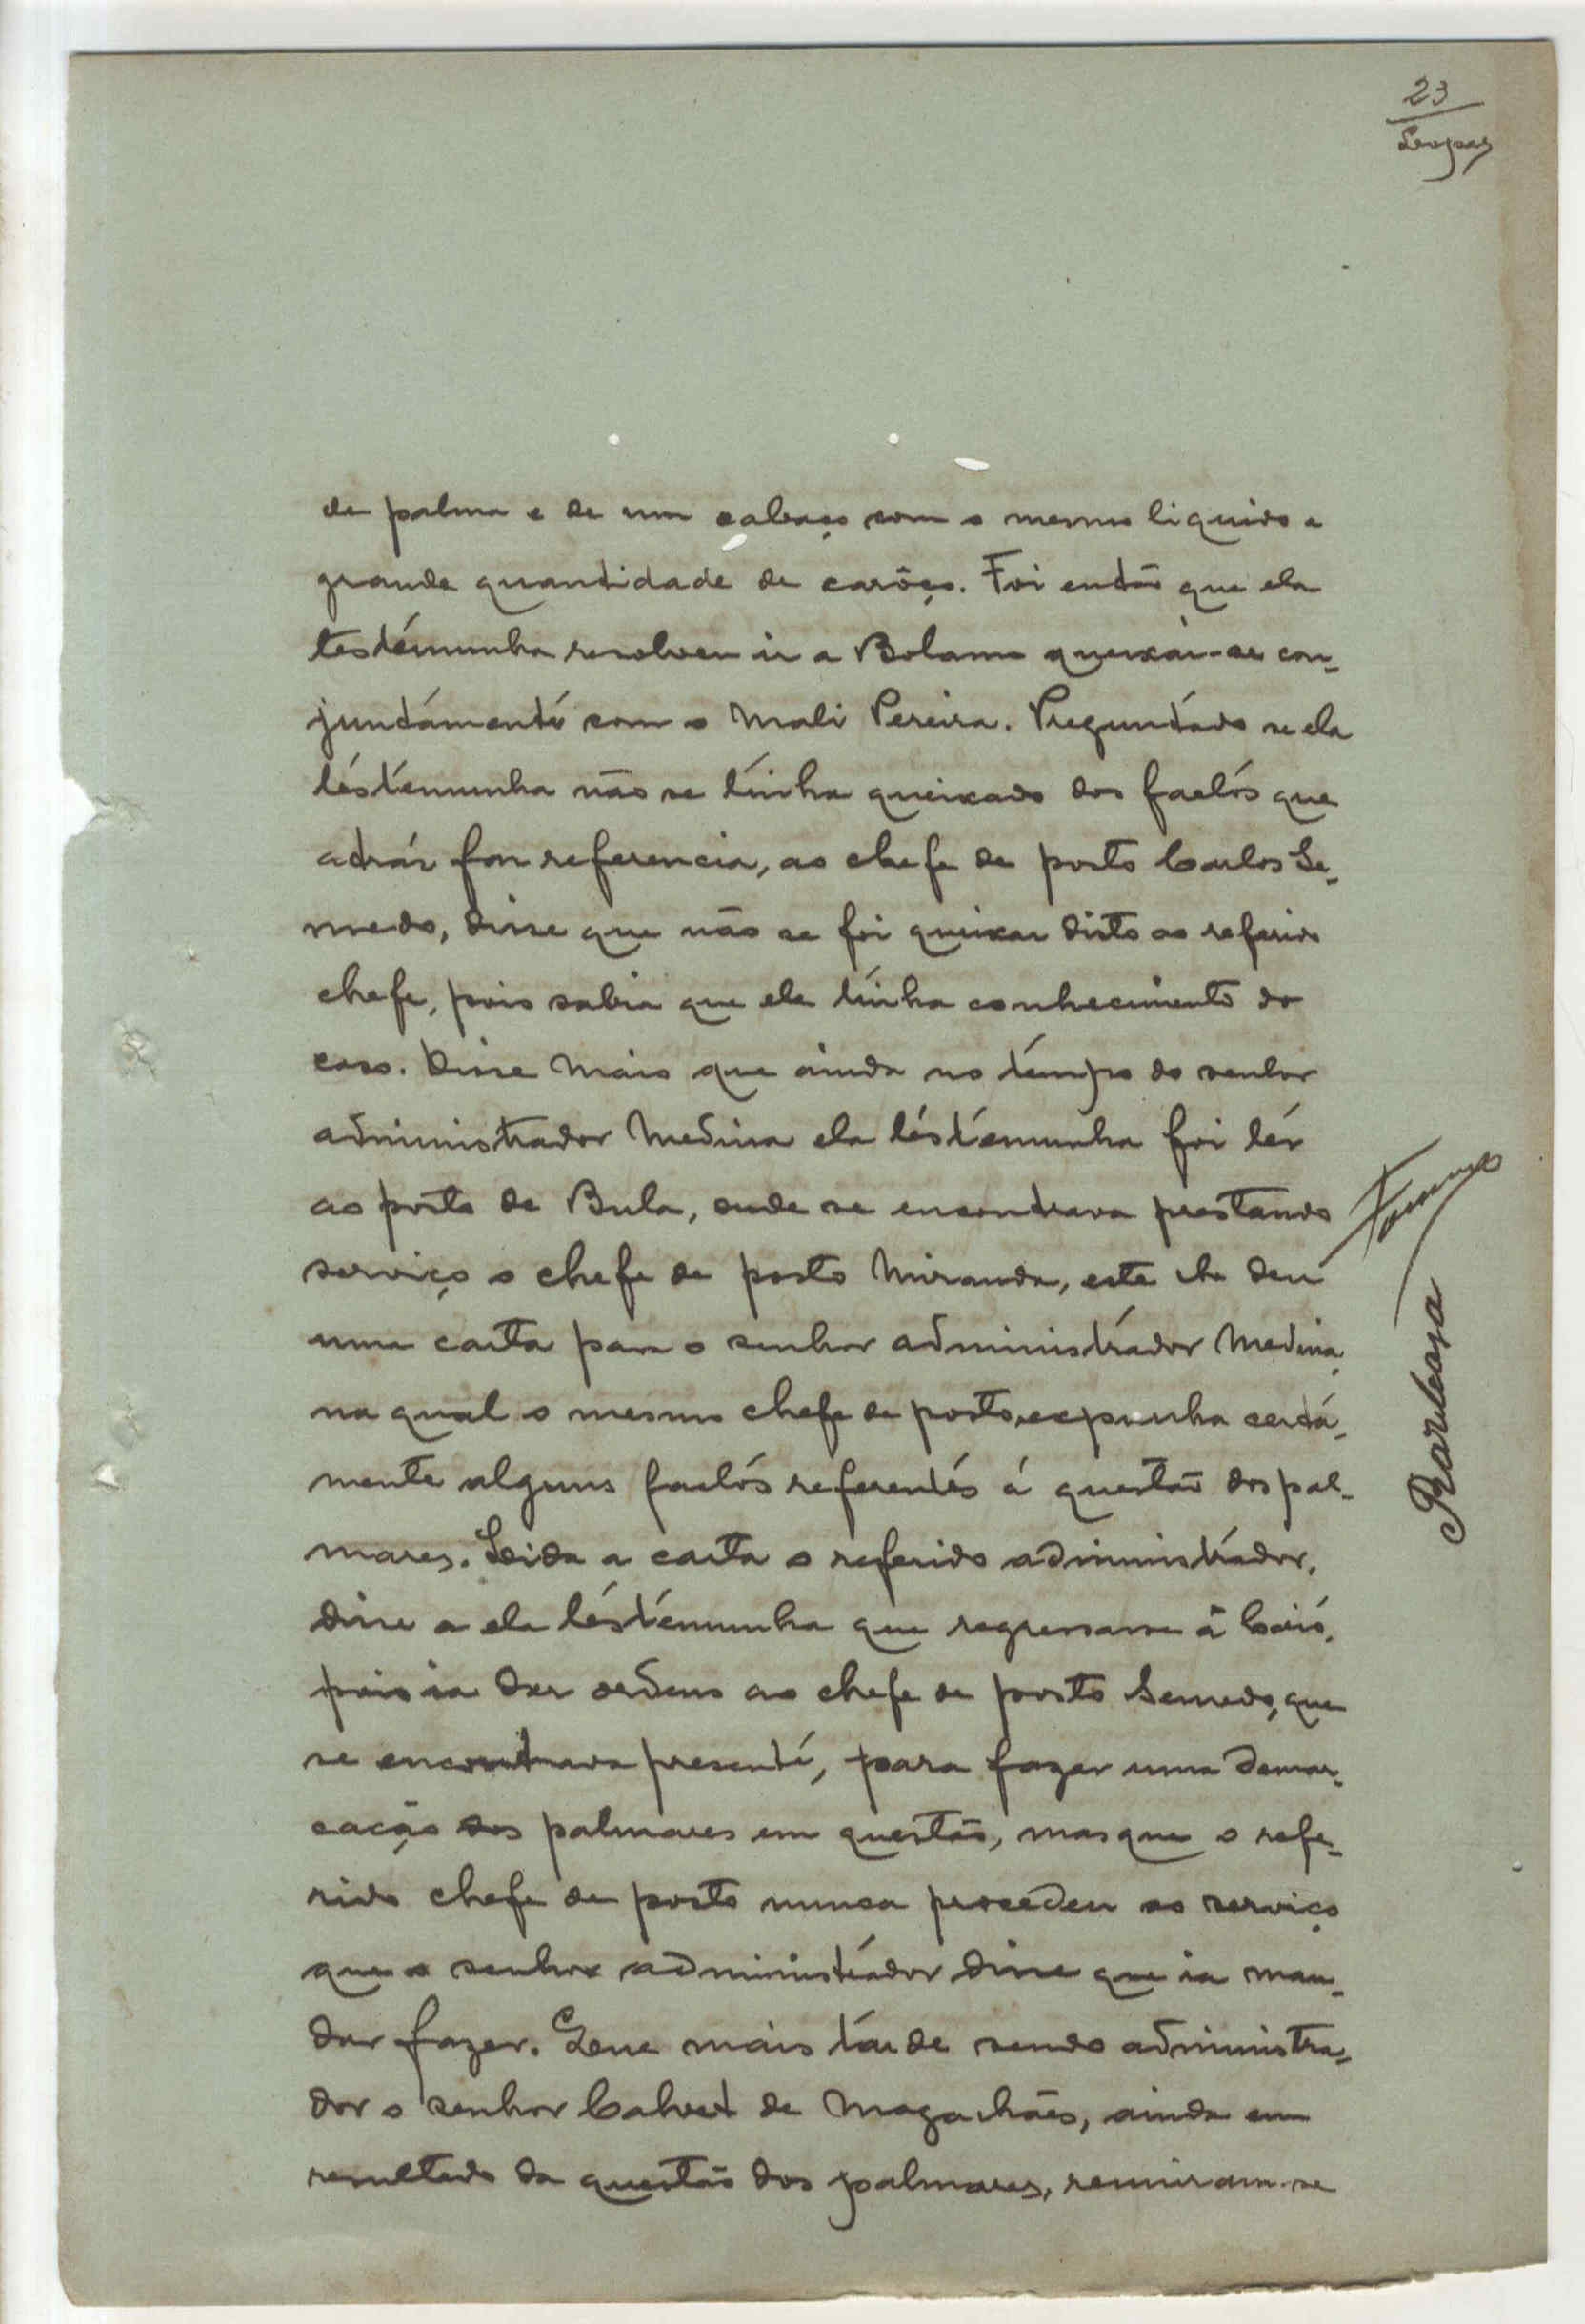 23
Lopes
de palma e de um cabaço com o mesmo liquido e
grande quantidade de carôço. Foi então que ela
testemunha resolveu ir a Bolama queixar-se con-
juntamente com o Mali Pereira. Preguntado se ela
testemunha não se tinha queixado dos factos que
atrás faz referencia, ao chefe de posto Carlos Se-
medo, disse que não se foi queixar disto ao referido
chefe, pois sabia que ele tinha conhecimento do
caso. Disse mais que ainda no tempo do senhor
administrador Medina ela testemunha foi ter
ao posto de Bula, onde se encontrava prestando
serviço o chefe de posto Miranda, este lhe deu
uma carta para o senhor administrador Medina,
na qual o mesmo chefe de posto expunha certa-
mente alguns factos referentes á questão dos pal-
mares. Leida a carta o referido administrador,
disse a ela testemunha que regressasse á Caió,
pois ia dar ordens ao chefe de posto Semedo, que
se encontrava presente, para fazer uma demar-
cação dos palmares em questão, mas que o refe-
rido chefe de posto nunca procedeu ao serviço
que o senhor administrador disse que ia man-
dar fazer. Que mais tarde sendo administra-
dor o senhor Calvet de Magalhães, ainda em
resultado da questão dos palmares, reuniram-se
Barbosa